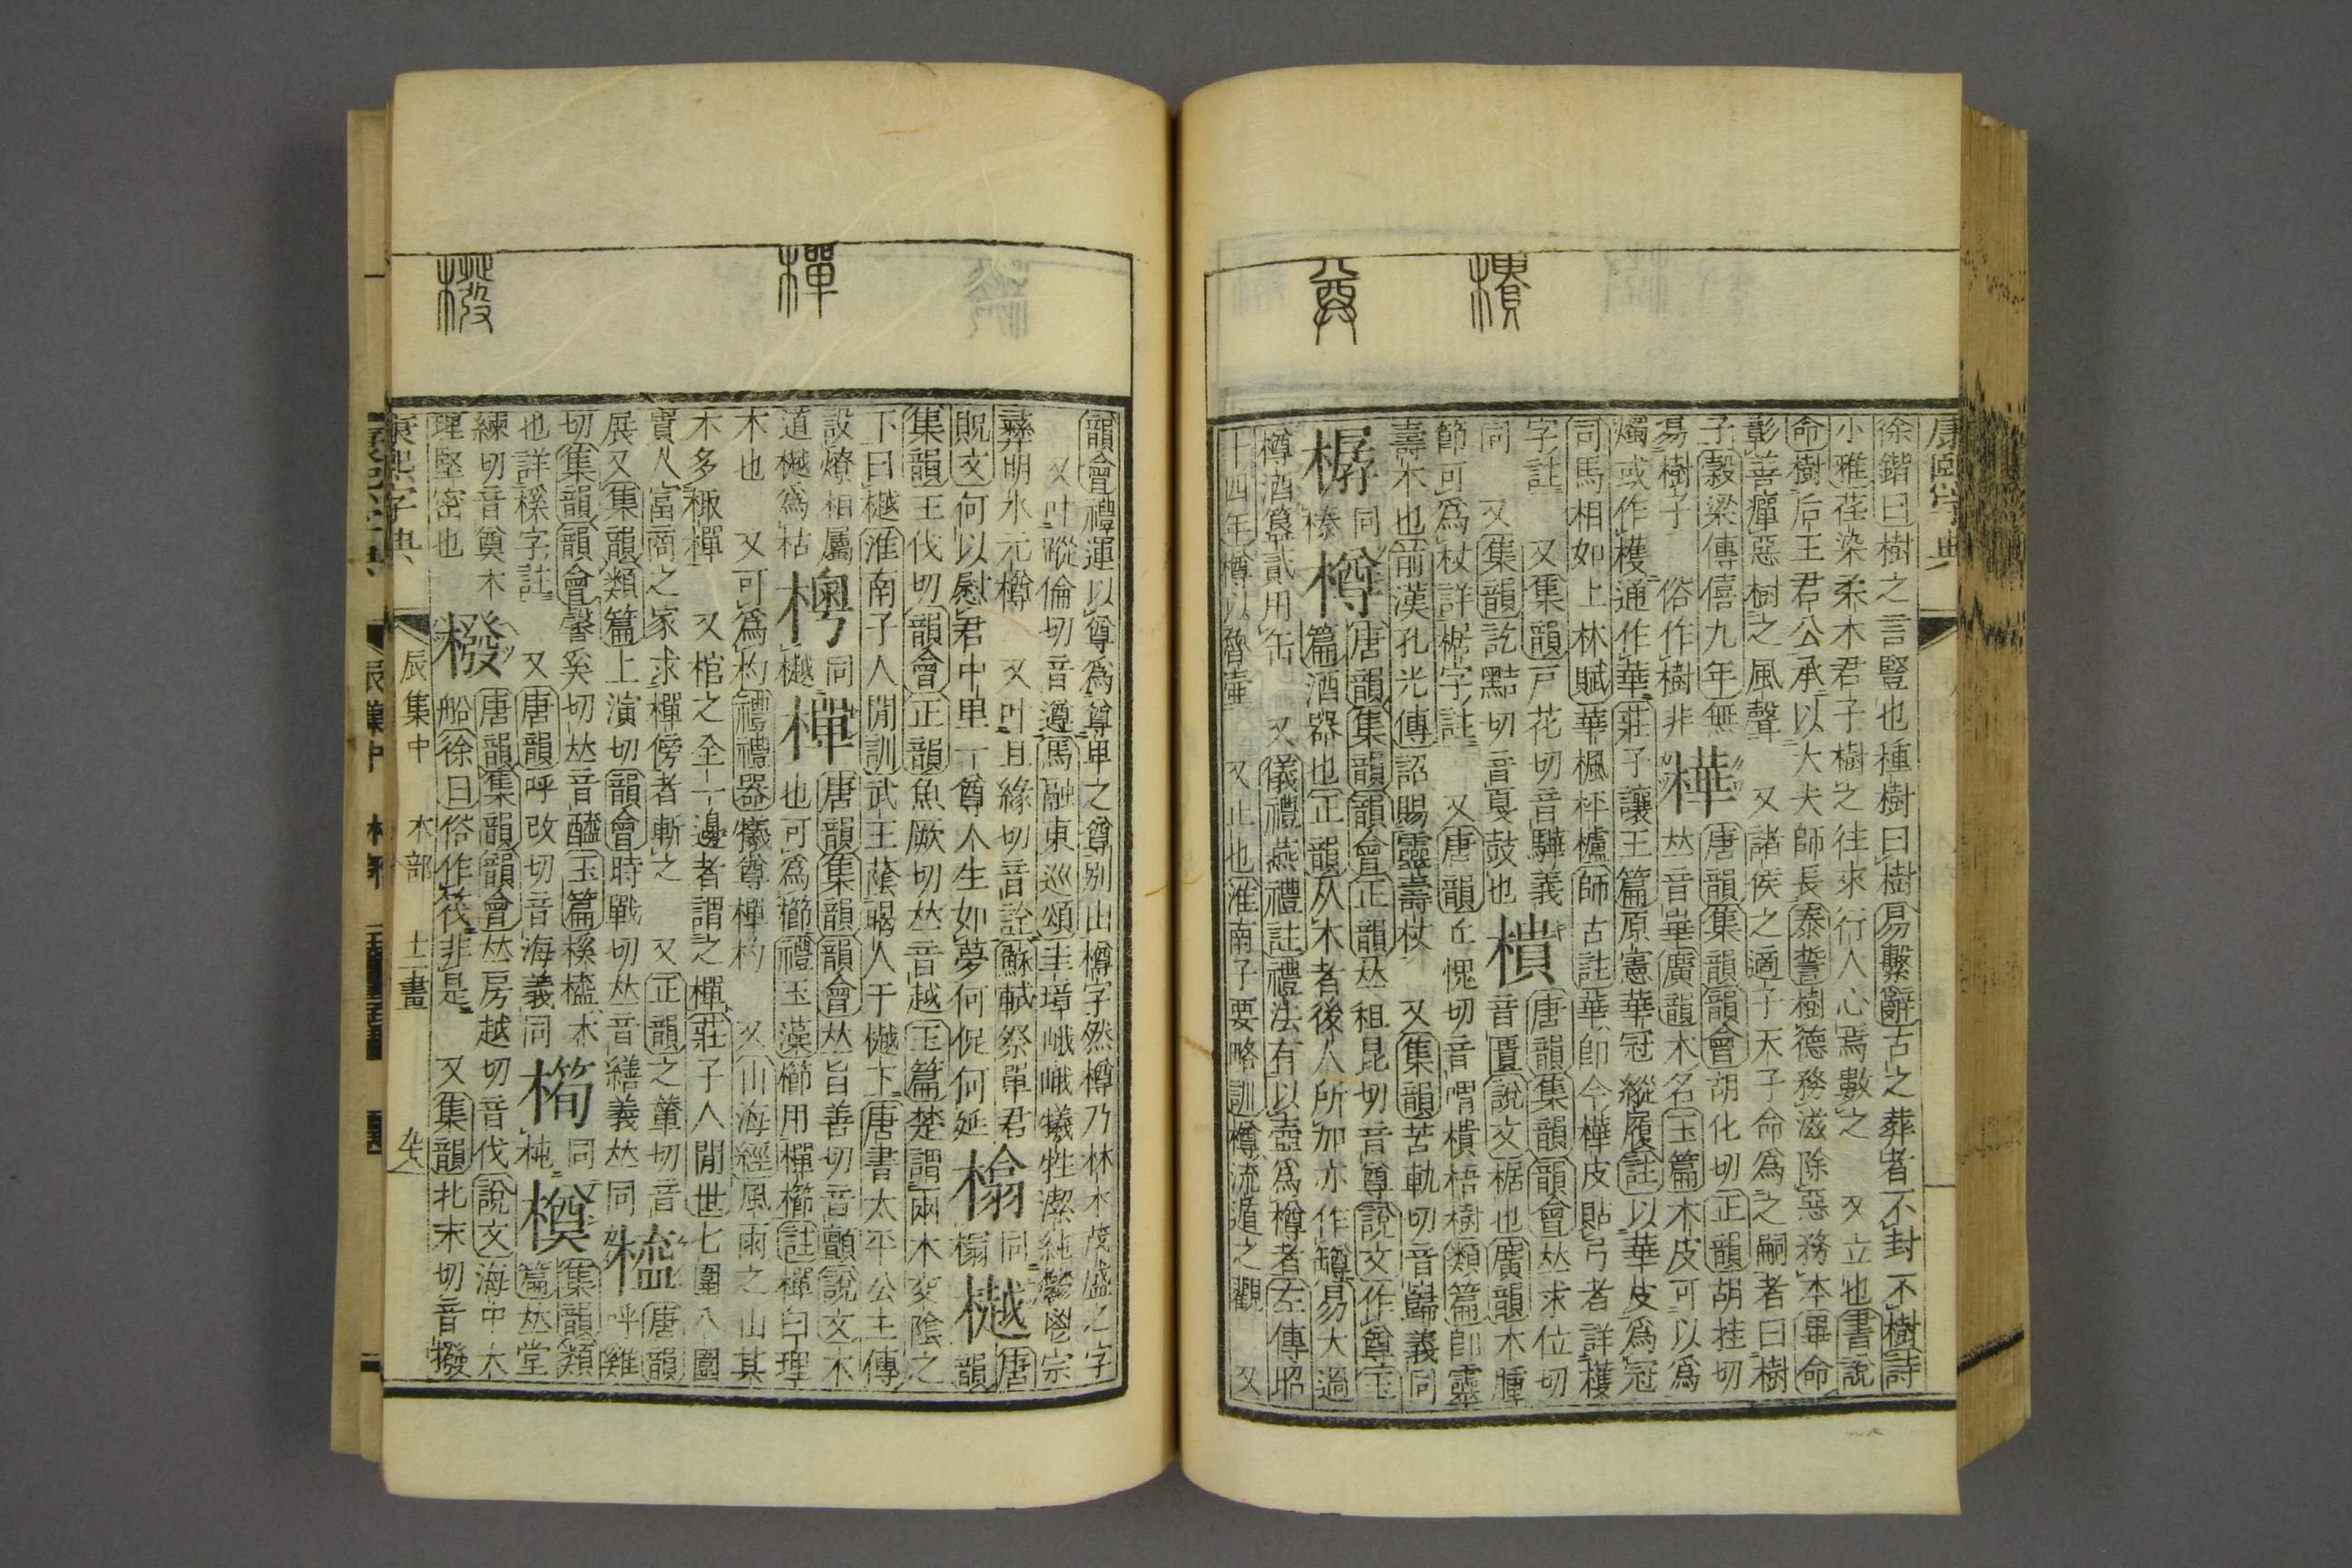 康熙字典
徐鍇曰樹之言豎也種樹曰樹易繫辭古之葬者不封不樹詩
小雅荏染柔木君子樹之往來行人心焉數之 又立也書說
命樹后王君公承以大夫師長泰誓樹德務滋除惡務本畢命
彰善癉惡樹之風聲 又諸侯之適子天子命爲之嗣者曰樹
子穀梁傳僖九年無 樺 唐韻集韻韻會胡化切正韻胡挂切
易樹子 俗作樹非 𠀤音崋廣韻木名玉篇木皮可以爲
燭或作檴通作華莊子讓王篇原憲華冠縰履註以華皮爲冠
司馬相如上林賦華楓枰櫨師古註華卽今樺皮貼弓者詳檴
字註 又集韻戸花切音驊義 樻 唐韻集韻韻會𠀤求位切
同 又集韻訖黠切音戛敔也 音匱說文椐也廣韻木腫
節可爲杖詳椐字註 又唐韻丘愧切音喟樻梧樹類篇卽靈
壽木也前漢孔光傳詔賜靈壽杖 又集韻苦軌切音巋義同
同 樽 唐韻集韻韻會正韻𠀤祖昆切音尊說文作尊玉
榛 篇酒器也正韻从木者後人所加亦作罇易大過
樽酒簋貳用缶 又儀禮燕禮註禮法有以壺爲樽者左傳昭
十四年樽以魯壺 又止也淮南子要略訓樽流遁之觀 又
樻
尊
韻會禮運以尊爲尊卑之尊別出樽字然樽乃林木茂盛之字
又叶蹤倫切音遵馬融東巡頌圭璋峨峨犧牲潔純鬱鬯宗
彝明水元樽 又叶且緣切音詮蘇軾祭單君 同 樾 唐
貺文何以慰君中臯一尊人生如夢何促何延 榻 韻
集韻王伐切韻會正韻魚厥切𠀤音越玉篇楚謂兩木交陰之
下曰樾淮南子人閒訓武王蔭暍人于樾下唐書太平公主傳
設燎相屬 同 樿 唐韻集韻韻會𠀤旨善切音顫說文木
道樾爲枯 樾 也可爲櫛禮玉藻櫛用樿櫛註樿白理
木也 又可爲杓禮禮器犧尊樿杓 又山海經風雨之山其
木多棷樿 又棺之全一邊者謂之樿莊子人閒世七圍八圍
貴人富商之家求樿傍者斬之 又正韻之輦切音 唐韻
展又集韻類篇上演切韻會時戰切𠀤音繕義𠀤同 呼雞
切集韻韻會馨奚切𠀤音醯玉篇榽榼木 橁 同 橂 集韻類
也詳榽字註 又唐韻呼改切音海義同 杶 篇𠀤堂
練切音奠木 橃 唐韻集韻韻會𠀤房越切音伐說文海中大
理堅密也 船徐曰俗作筏非是 又集韻北末切音撥
樿
橃
康熙字典 辰集中 木部 十二畫